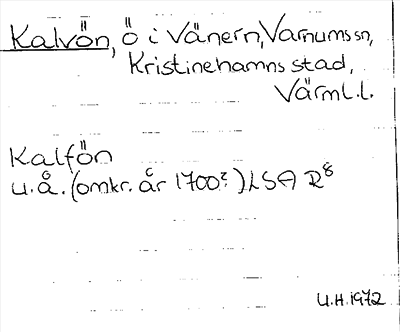 Kalvön, ö i Vänern, Varnums sn,
Kristinehamns stad,
Värml.l.
Kalfön
u.å. (omkr. år 1700?) LSA R⁸
U.H. 1972